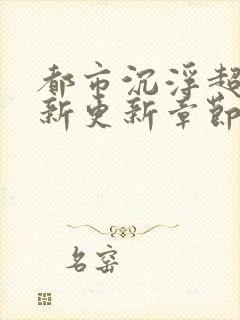 都市沉浮超
新更新章節
名窑